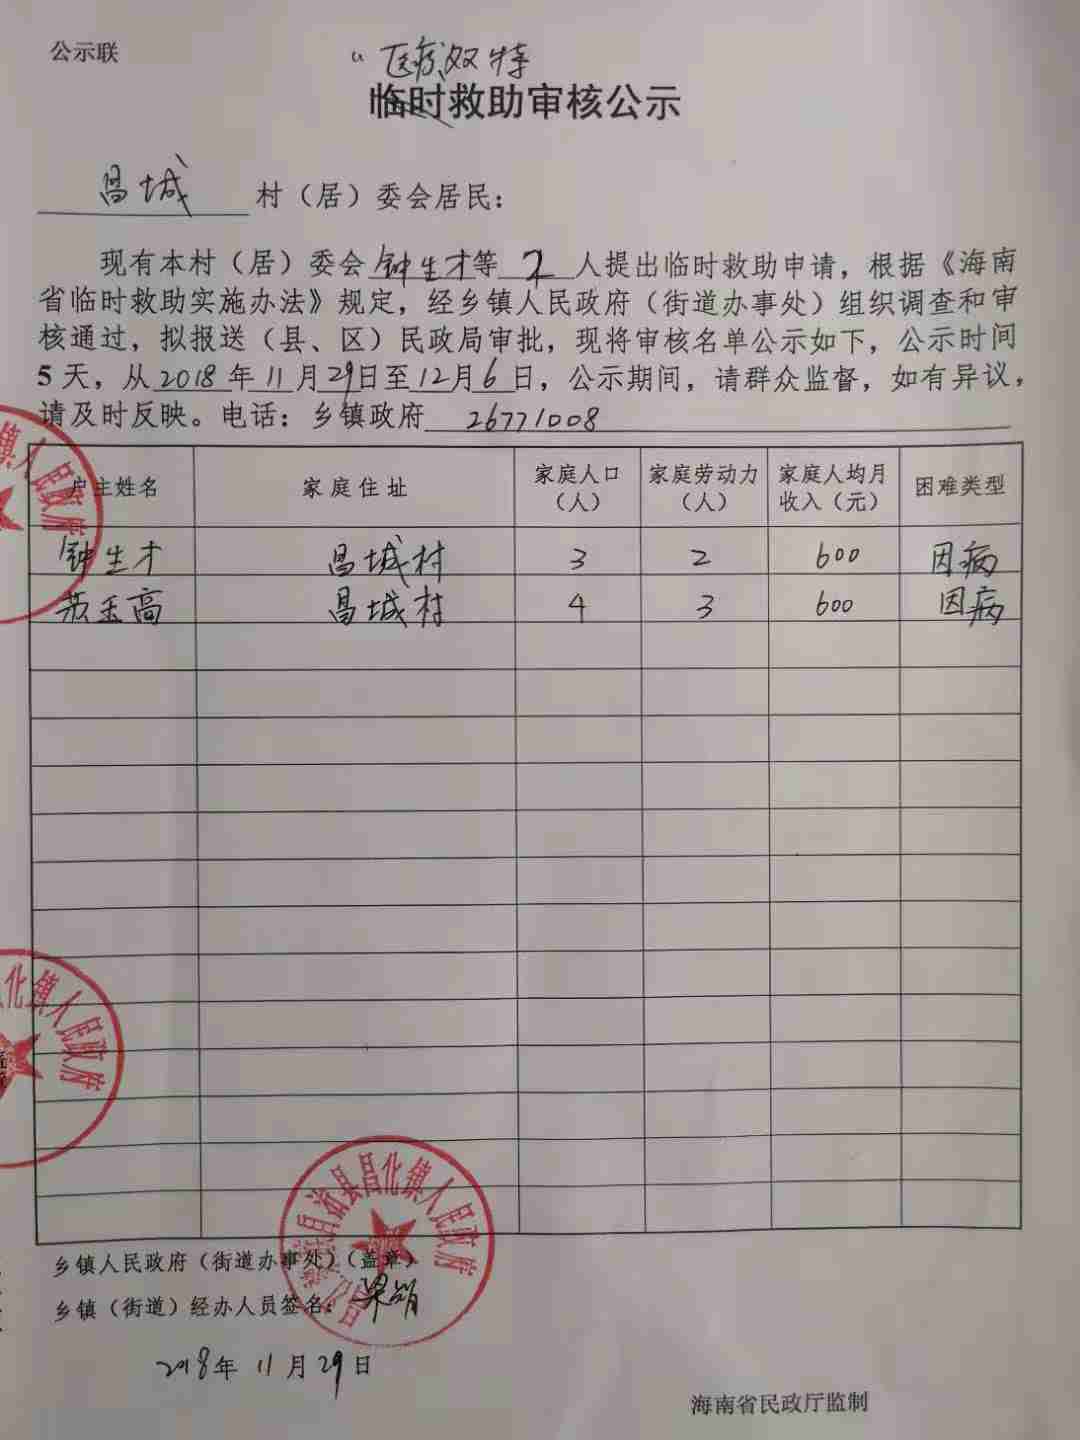 公示联
“医疗双特
临时救助审核公示
昌城 村（居）委会居民：
现有本村（居）委会钟生才等 2 人提出临时救助申请，根据《海南
省临时救助实施办法》规定，经乡镇人民政府（街道办事处）组织调查和审
核通过，拟报送（县、区）民政局审批，现将审核名单公示如下，公示时间
5 天，从2018 年 11 月29日至12月6日，公示期间，请群众监督，如有异议，
请及时反映。电话：乡镇政府 26771008
户主姓名 家庭住址 家庭人口（人） 家庭劳动力（人） 家庭人均月收入（元） 困难类型
钟生才 昌城村 3 2 600 因病
苏玉高 昌城村 4 3 600 因病
镇人民政府
化镇人民政府
县昌化镇人民政府
乡镇人民政府（街道办事处）（盖章）
乡镇（街道）经办人员签名：
2018年 11 月 29日
海南省民政厅监制